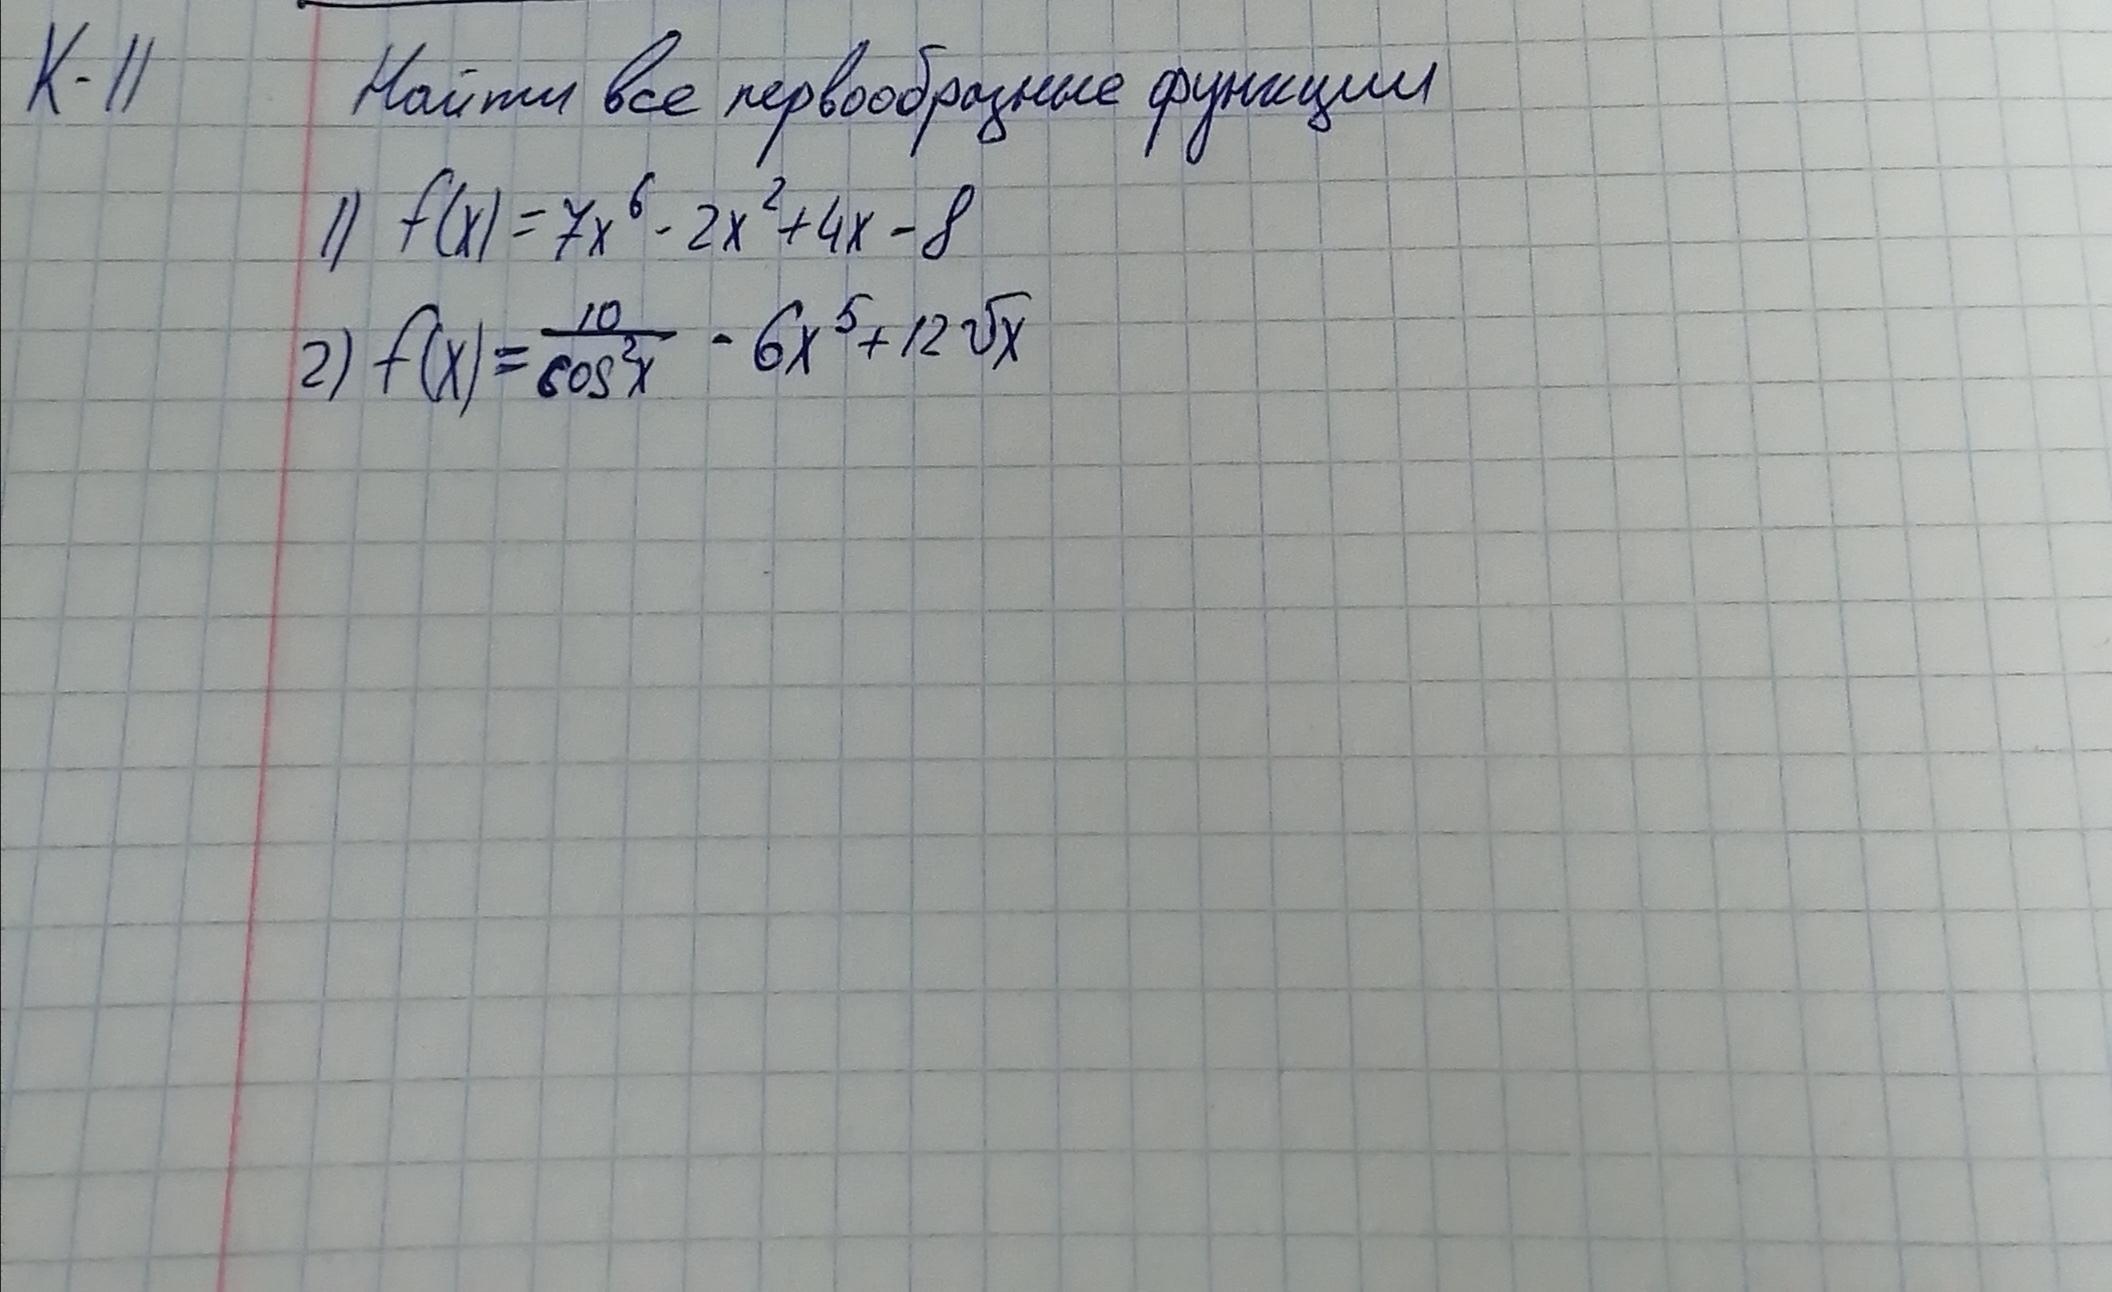 К-11 Найти все первообразные функции
1) f(x)=7x⁶-2x²+4x-8
2) f(x)=10/cos²x - 6x⁵+12√x